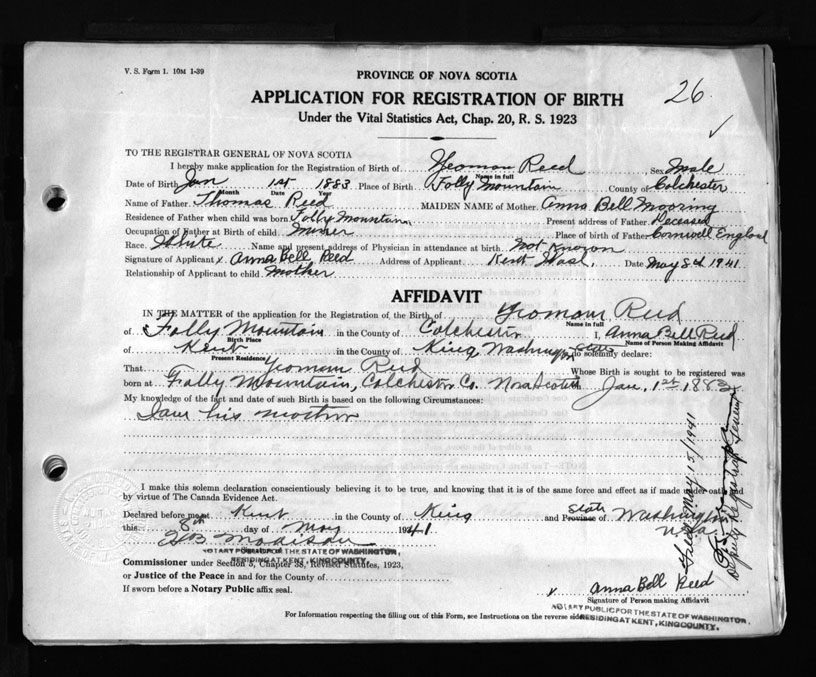 V. S. Form 1. 10M 1-39
PROVINCE OF NOVA SCOTIA
26
APPLICATION FOR REGISTRATION OF BIRTH
Under the Vital Statistics Act, Chap. 20, R. S. 1923
TO THE REGISTRAR GENERAL OF NOVA SCOTIA
I hereby make application for the Registration of Birth of Yeoman Reed Sex Male
Name in full
Date of Birth Jan 1st 1883 Place of Birth Folly Mountain County of Colchester
Month Date Year
Name of Father Thomas Reed MAIDEN NAME of Mother Anna Bell Mooring
Residence of Father when child was born Folly Mountain Present address of Father Deceased
Occupation of Father at Birth of child Miner Place of birth of Father Cornwell England
Race White Name and present address of Physician in attendance at birth Not Known
Signature of Applicant x Anna Bell Reed Address of Applicant Kent Wash, Date May 8th 1941
Relationship of Applicant to child Mother
AFFIDAVIT
IN THE MATTER of the application for the Registration of the Birth of Yeoman Reed
Name in full
of Folly Mountain in the County of Colchester I, Anna Bell Reed
Birth Place Name of Person Making Affidavit
of Kent in the County of King, Washington State do solemnly declare:
Present Residence
That Yeoman Reed Whose Birth is sought to be registered was
born at Folly Mountain, Colchester Co. Nova Scotia Jan. 1st 1883
My knowledge of the fact and date of such Birth is based on the following Circumstances:
I am his mother
I make this solemn declaration conscientiously believing it to be true, and knowing that it is of the same force and effect as if made under oath and
by virtue of The Canada Evidence Act.
Declared before me at Kent in the County of King and State Province of Washington
this 8th day of May 1941
H B Madison
NOTARY PUBLIC FOR THE STATE OF WASHINGTON,
RESIDING AT KENT, KING COUNTY.
Commissioner under Section 5, Chapter 38, Revised Statutes, 1923,
or Justice of the Peace in and for the County of
If sworn before a Notary Public affix seal.
x Anna Bell Reed
Signature of Person making Affidavit
NOTARY PUBLIC FOR THE STATE OF WASHINGTON,
RESIDING AT KENT, KING COUNTY.
For Information respecting the filling out of this Form, see Instructions on the reverse side
May 15/1941
Deputy Registrar General